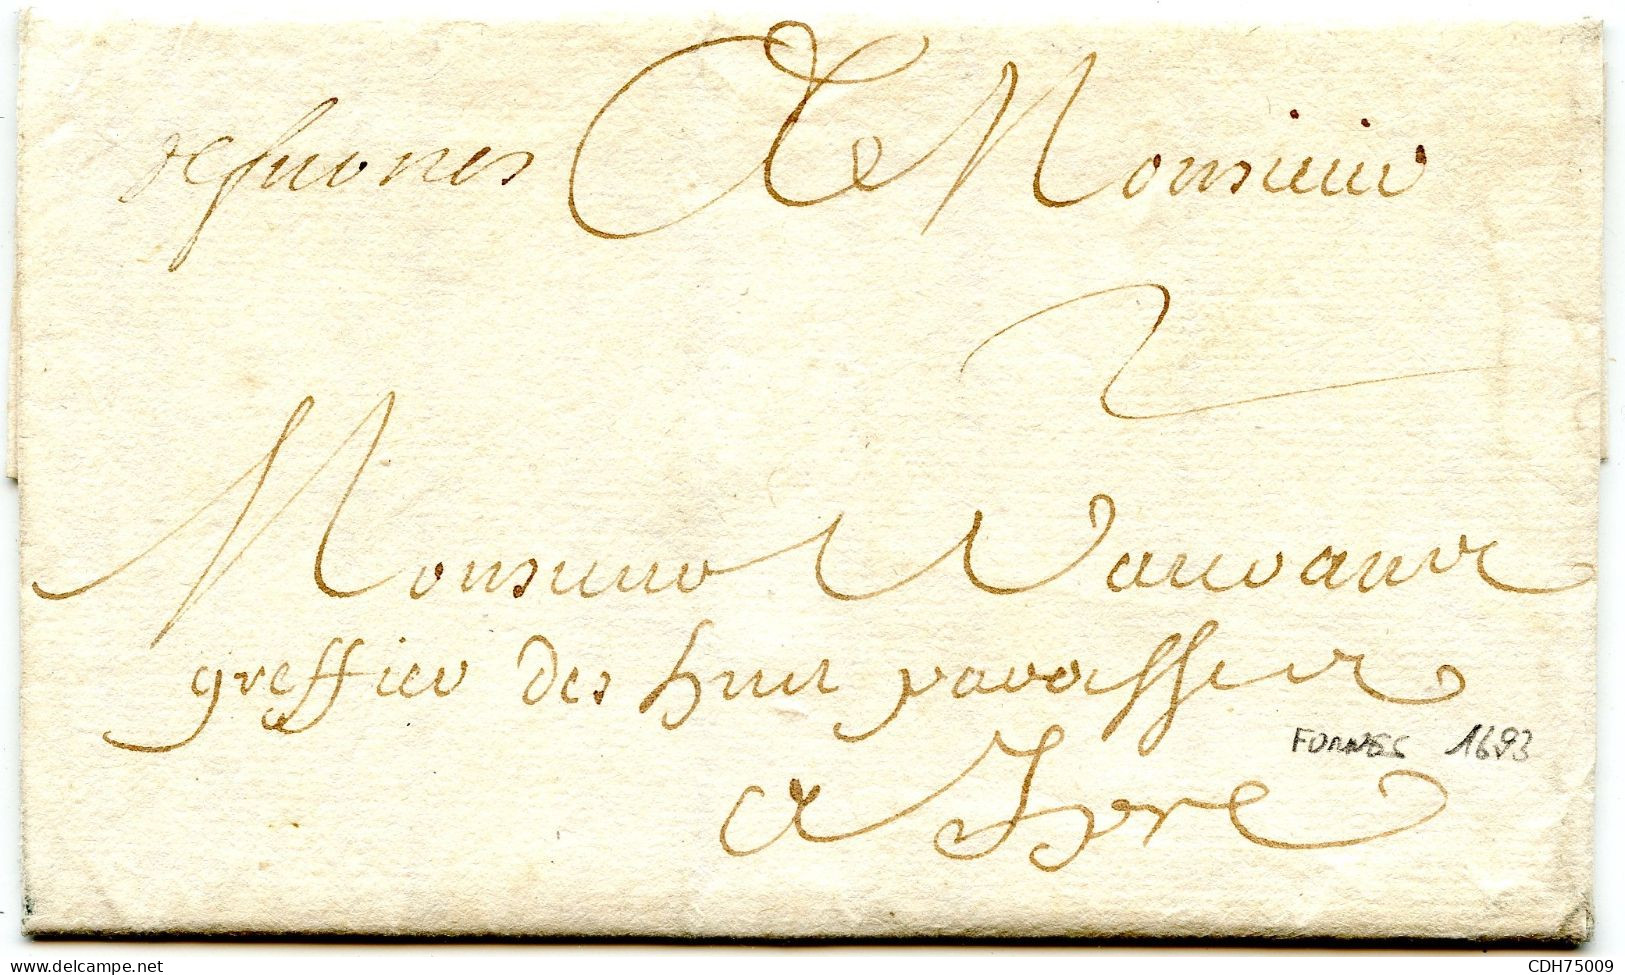 de furnes A Monsieur
2
Monsieur
greffier des huit parossen
a Ipre
FURNES 1693
delcampe.net
CDH75009